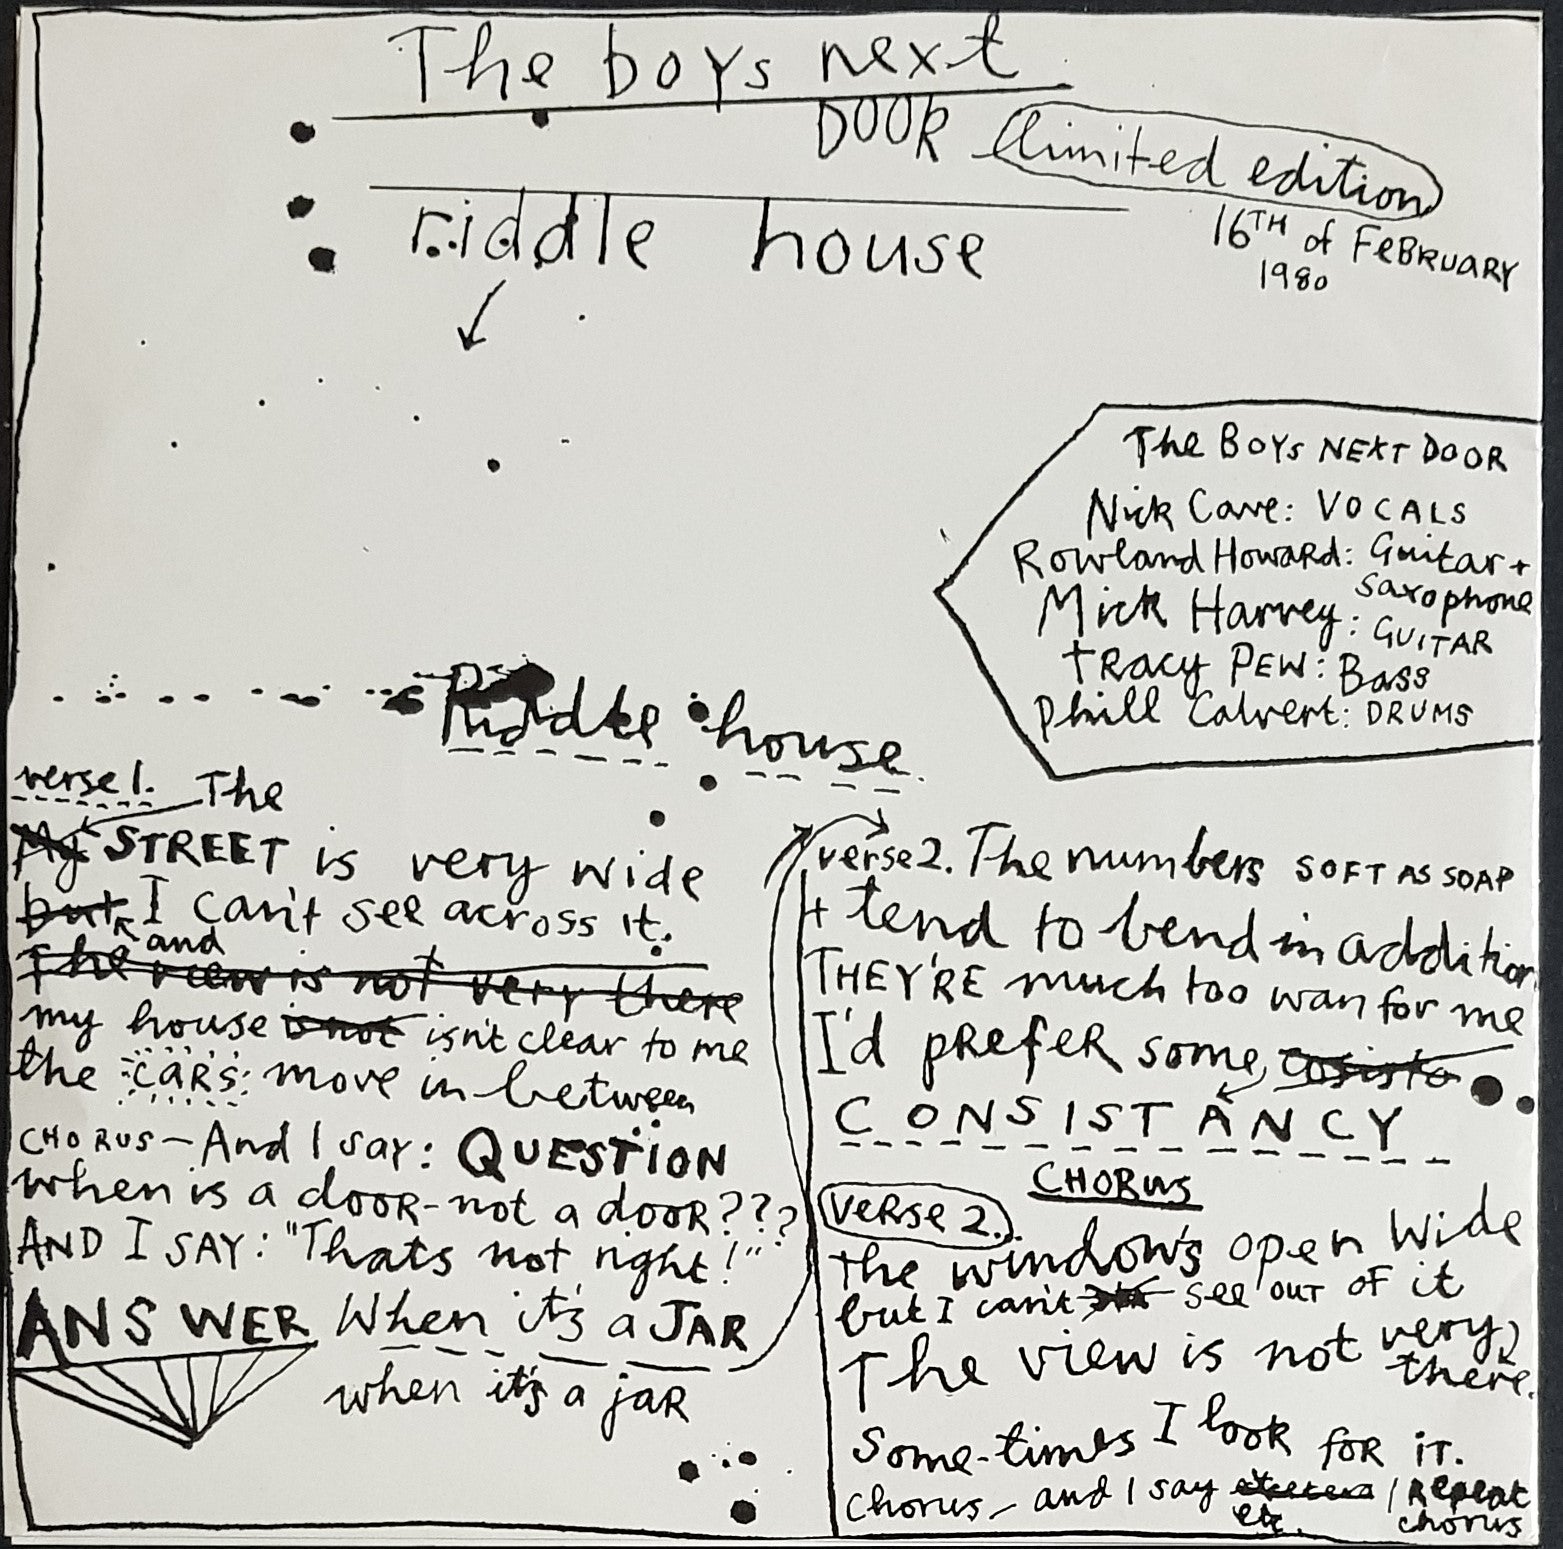 The boys next
DOOR
limited edition
16TH of FeBRUARY
1980
riddle house
The BOYS NEXT DOOR
Nick Cave: VOCALS
Rowland Howard: Guitar +
saxophone
Mick Harvey: GUITAR
tRACY PEW: BASS
Phill Calvert: DRUMS
Riddle house
verse 1. The
My STREET is very wide
but I can't see across it.
and
The view is not very there
my house is not isn't clear to me
the CARS move in between
CHORUS - And I say: QUESTION
when is a dooR - not a dooR????
AND I SAY: "Thats not right!"
ANSWER When it's a JAR
when it's a jaR
verse 2. The numbers SOFT AS SOAP
+ tend to bend in addition
THEY'RE much too wan for me
I'd pRefeR some cosista
CONSISTANCY
CHORUS
VeRse 2.
the window's open wide
but I can't see OUT OF it
The view is not very
there.
Some-times I look foR iT.
Chorus - and I say etcetera / Repeat
etc. chorus